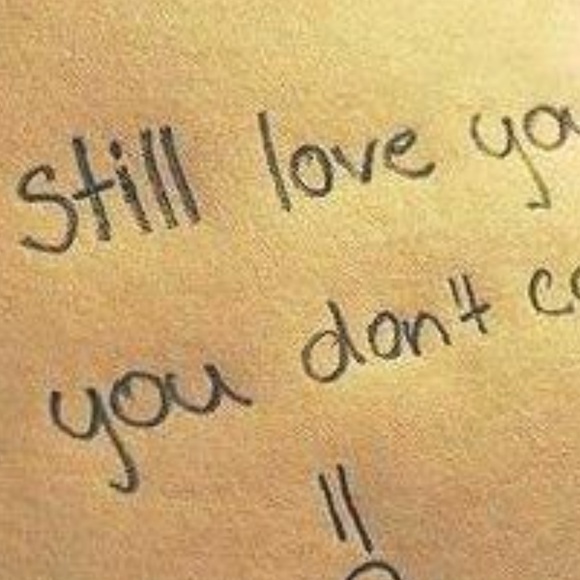 Still love yo
you don't co